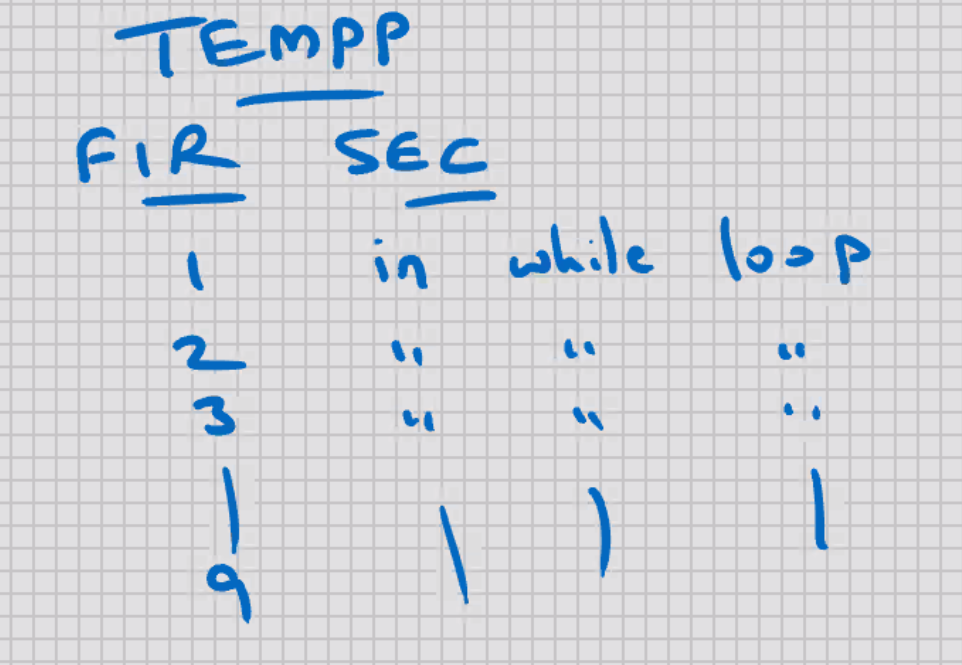 TEMPP
FIR SEC
1 in while loop
2 " " "
3 " " "
| | | |
9